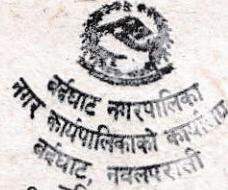 बर्दघाट नगरपालिका
नगर कार्यपालिकाको कार्यालय
बर्दघाट, नवलपरासी